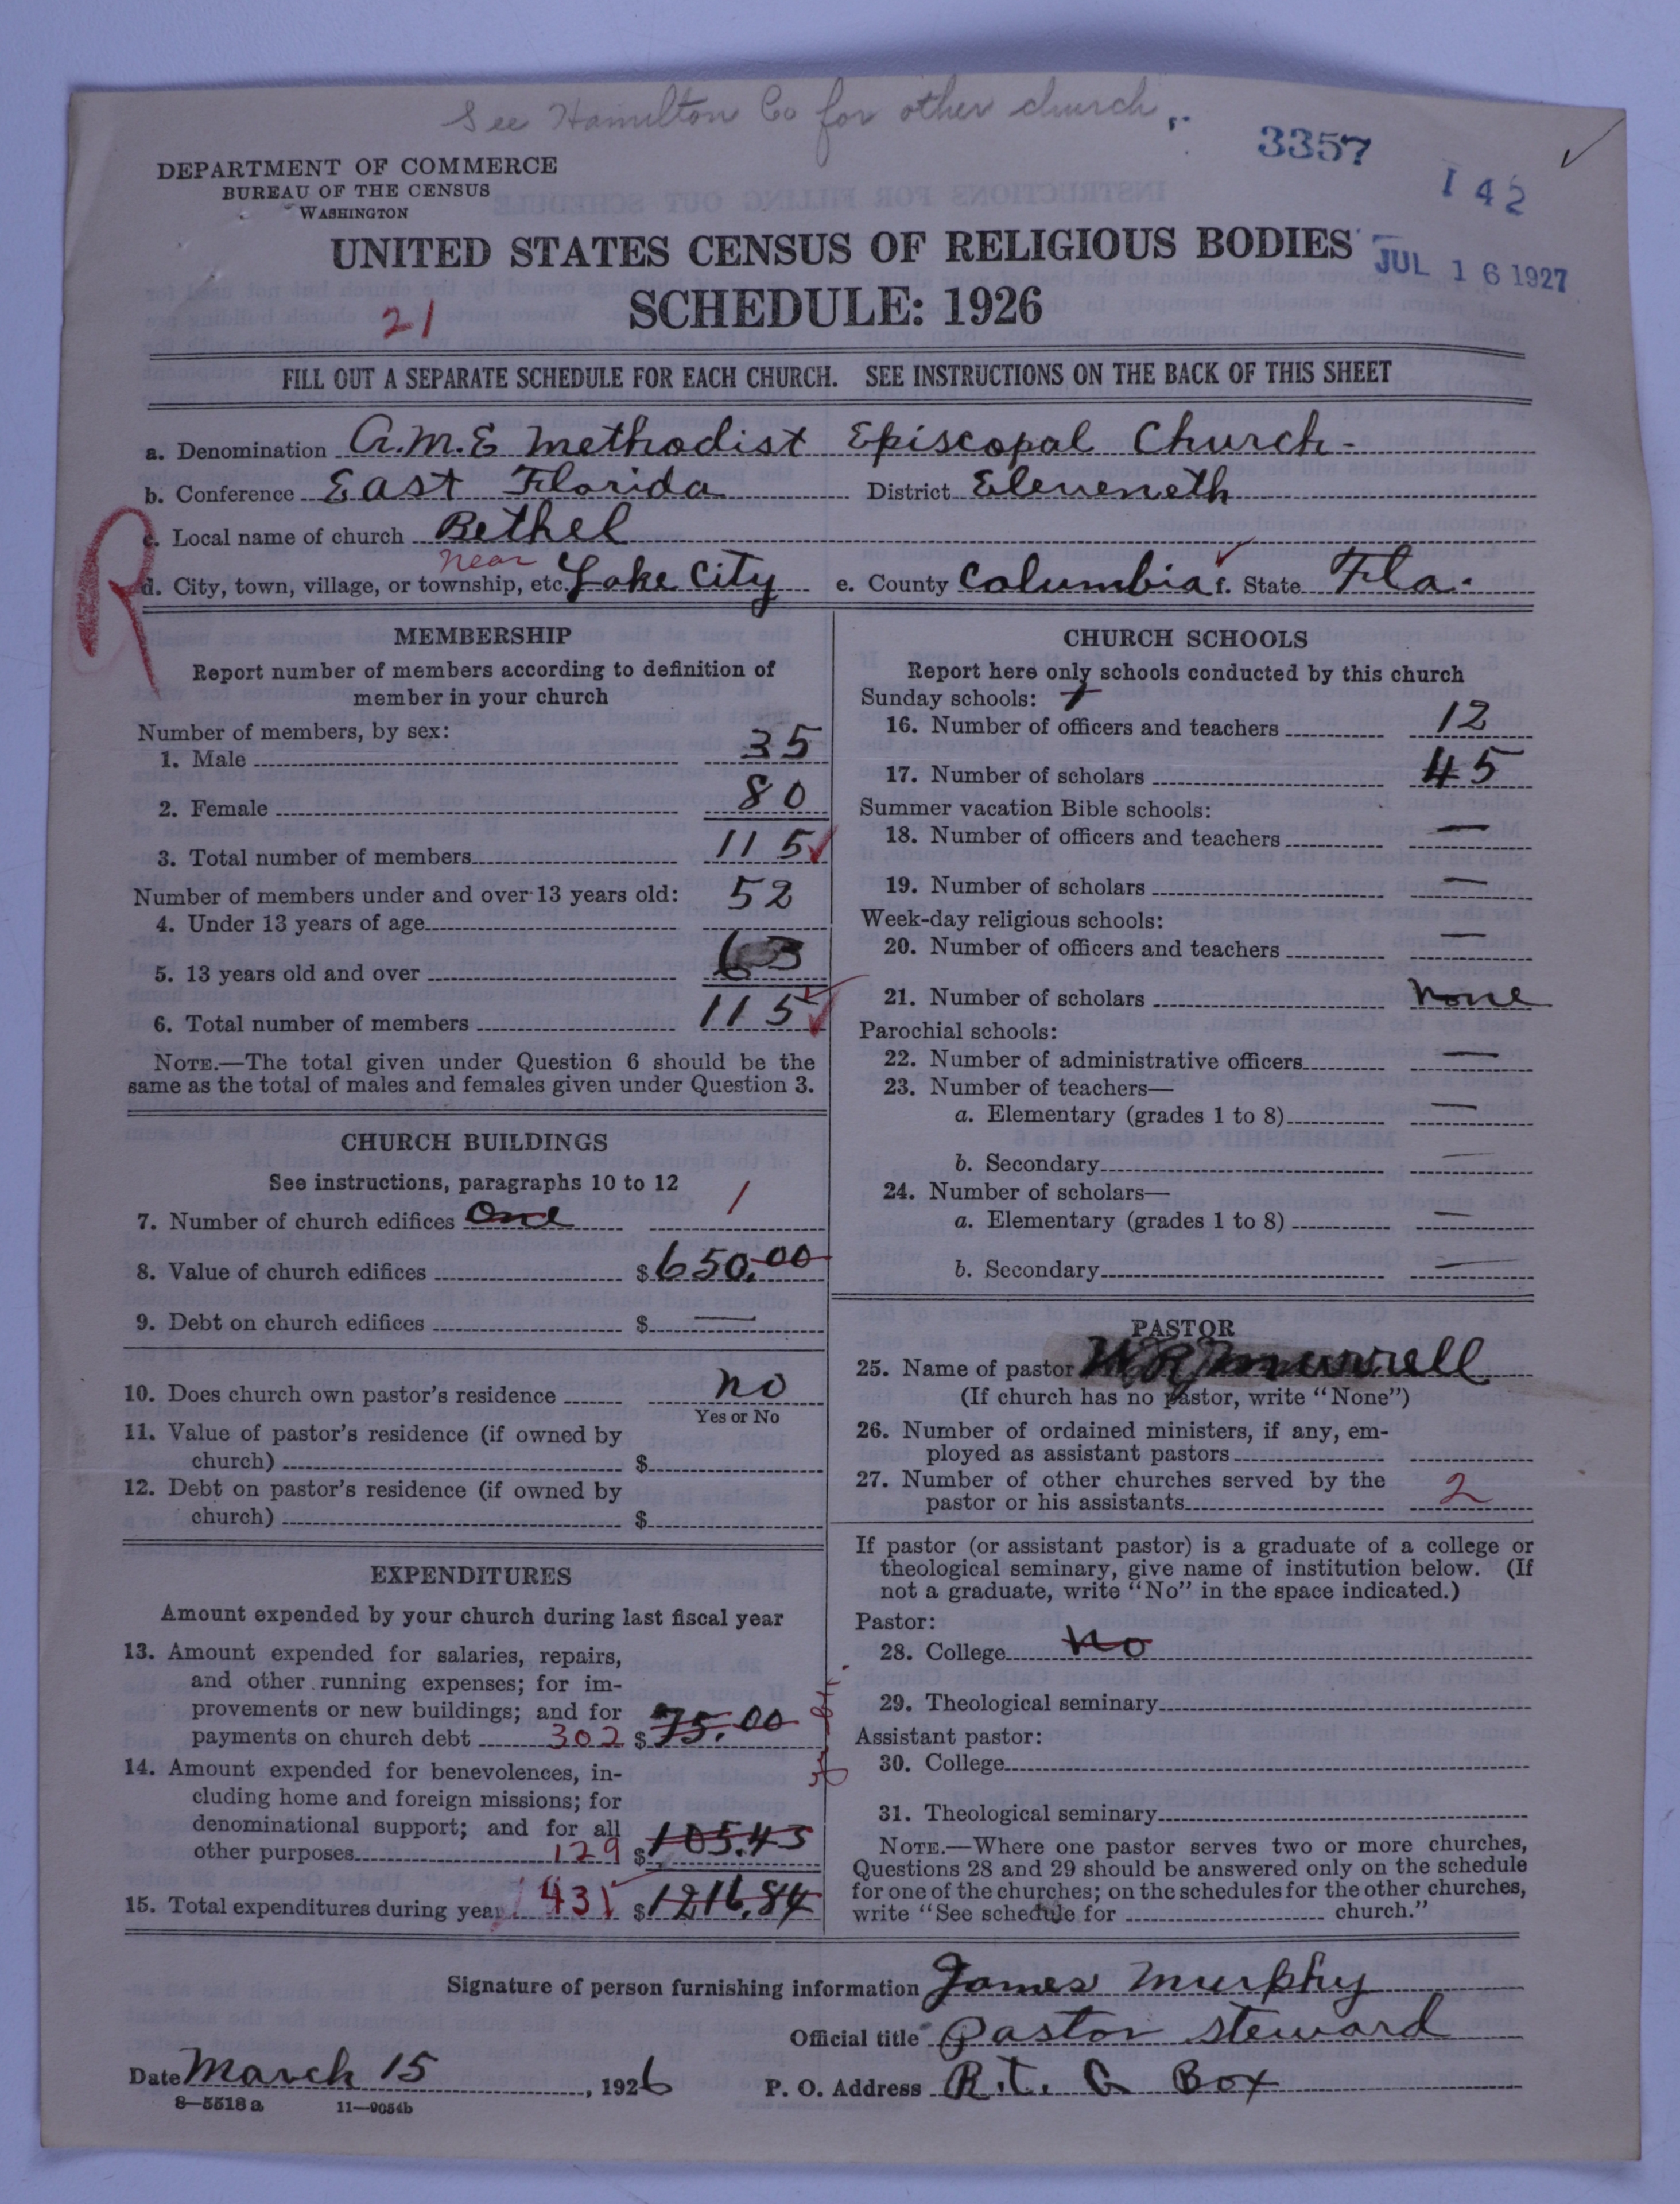 See Hamilton Co for other church
3357
142
DEPARTMENT OF COMMERCE
BUREAU OF THE CENSUS
WASHINGTON
UNITED STATES CENSUS OF RELIGIOUS BODIES
JUL 16 1927
SCHEDULE: 1926
21
FILL OUT A SEPARATE SCHEDULE FOR EACH CHURCH. SEE INSTRUCTIONS ON THE BACK OF THIS SHEET
a. Denomination A.M.E Methodist Episcopal Church-
b. Conference East Florida District Eleveneth
R
c. Local name of church Bethel
near
d. City, town, village, or township, etc. Lake City e. County Columbia f. State Fla.
MEMBERSHIP
Report number of members according to definition of
member in your church
Number of members, by sex:
1. Male 35
2. Female 80
3. Total number of members 115
Number of members under and over 13 years old:
4. Under 13 years of age 52
5. 13 years old and over 63
6. Total number of members 115
NOTE.—The total given under Question 6 should be the
same as the total of males and females given under Question 3.
CHURCH BUILDINGS
See instructions, paragraphs 10 to 12
7. Number of church edifices One 1
8. Value of church edifices $650.00
9. Debt on church edifices $ —
10. Does church own pastor's residence no
Yes or No
11. Value of pastor's residence (if owned by
church) $
12. Debt on pastor's residence (if owned by
church) $
EXPENDITURES
Amount expended by your church during last fiscal year
13. Amount expended for salaries, repairs,
and other running expenses; for im-
provements or new buildings; and for
payments on church debt 302 $75.00
14. Amount expended for benevolences, in-
cluding home and foreign missions; for
denominational support; and for all
other purposes 129 $105.45
15. Total expenditures during year 431 $1216.84
CHURCH SCHOOLS
Report here only schools conducted by this church
Sunday schools: 1
16. Number of officers and teachers 12
17. Number of scholars 45
Summer vacation Bible schools:
18. Number of officers and teachers —
19. Number of scholars —
Week-day religious schools:
20. Number of officers and teachers —
21. Number of scholars none
Parochial schools:
22. Number of administrative officers —
23. Number of teachers—
a. Elementary (grades 1 to 8) —
b. Secondary —
24. Number of scholars—
a. Elementary (grades 1 to 8) —
b. Secondary —
PASTOR
25. Name of pastor W.R. Murrell
(If church has no pastor, write "None")
26. Number of ordained ministers, if any, em-
ployed as assistant pastors
27. Number of other churches served by the
pastor or his assistants 2
If pastor (or assistant pastor) is a graduate of a college or
theological seminary, give name of institution below. (If
not a graduate, write "No" in the space indicated.)
Pastor:
28. College No
29. Theological seminary
Assistant pastor:
30. College
31. Theological seminary
NOTE.—Where one pastor serves two or more churches,
Questions 28 and 29 should be answered only on the schedule
for one of the churches; on the schedules for the other churches,
write "See schedule for church."
Signature of person furnishing information James Murphy
Official title Pastor Steward
Date March 15, 1926 P. O. Address R.t. a Box
8—5518a 11—9054b